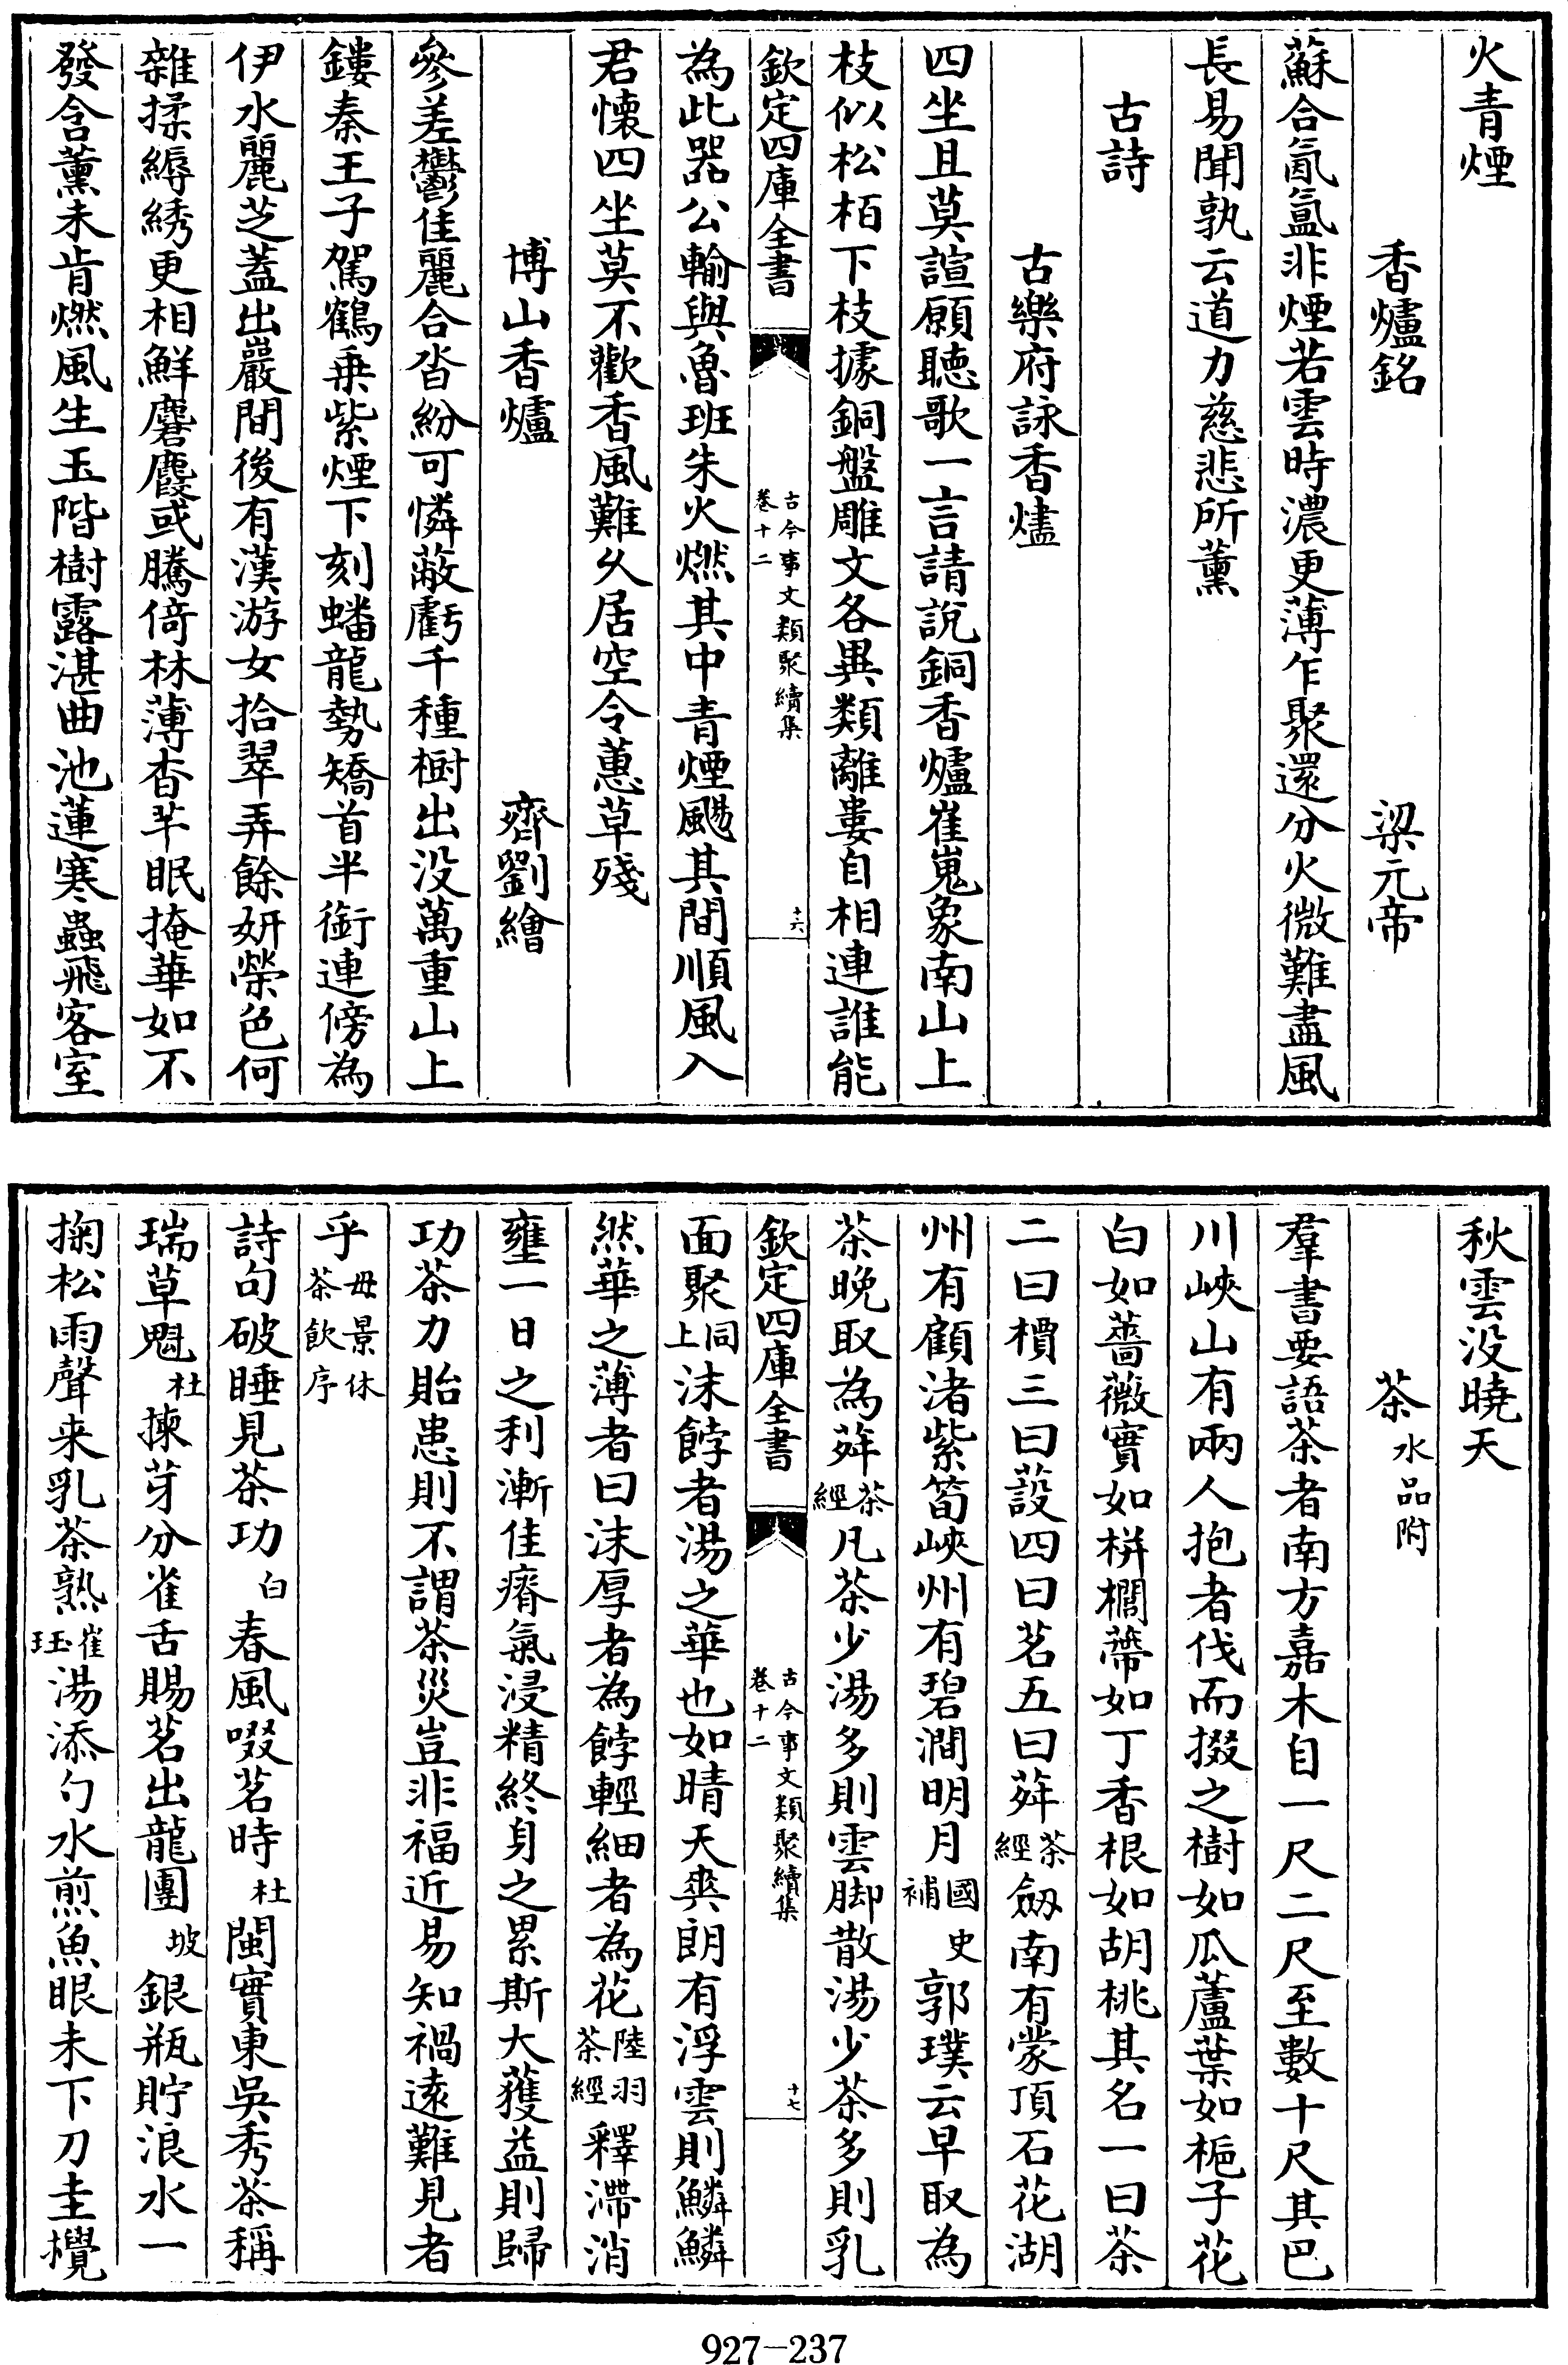 火青煙
香爐銘　梁元帝
蘇合氤氲非煙若雲時濃更薄乍聚還分火微難盡風
長易聞孰云道力慈悲所薰
古詩
古樂府詠香爐
四坐且莫諠願聽歌一言請說銅香爐崔嵬象南山上
枝似松栢下枝據銅盤雕文各異類離婁自相連誰能
欽定四庫全書
古今事文類聚續集
卷十二
十六
為此器公輸與魯班朱火燃其中青煙颺其間順風入
君懷四坐莫不歡香風難久居空令蕙草殘
博山香爐　齊劉繪
參差鬱佳麗合沓紛可憐蔽虧千種樹出没萬重山上
鏤秦王子駕鶴乗紫煙下刻蟠龍勢矯首半銜連傍為
伊水麗芝蓋出巖間後有漢游女拾翠弄餘妍榮色何
雜揉縟綉更相鮮麏麚或騰倚林薄杳芊眠掩華如不
發含薰未肯燃風生玉階樹露湛曲池蓮寒蟲飛客室
秋雲没曉天
茶水品附
羣書要語茶者南方嘉木自一尺二尺至數十尺其巴
川峽山有兩人抱者伐而掇之樹如瓜蘆葉如梔子花
白如薔薇實如栟櫚蔕如丁香根如胡桃其名一曰茶
二曰檟三曰蔎四曰茗五曰荈茶經劔南有蒙頂石花湖
州有顧渚紫筍峽州有碧澗明月國史補郭璞云早取為
茶晚取為荈茶經凡茶少湯多則雲脚散湯少茶多則乳
欽定四庫全書
古今事文類聚續集
卷十二
十七
面聚同上沫餑者湯之華也如晴天爽朗有浮雲則鱗鱗
然華之薄者曰沫厚者為餑輕細者為花陸羽茶經釋滯消
壅一日之利漸佳瘠氣浸精終身之累斯大獲益則歸
功茶力貽患則不謂茶災豈非福近易知禍遠難見者
乎毋景休茶飲序
詩句破睡見茶功白春風啜茗時杜閩實東吳秀茶稱
瑞草魁杜揀芽分雀舌賜茗出龍團坡銀瓶貯浪水一
掬松雨聲来乳茶熟崔珏湯添勺水煎魚眼末下刀圭攪
927-237